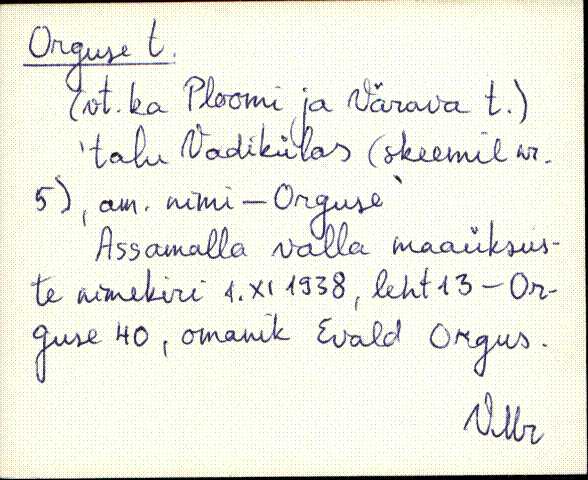 Orguse t.
(vt. ka Ploomi ja Värava t.)
'talu Vadikülas (skeemil nr.
5), am. nimi – Orguse'
Assamalla valla maaüksus-
te nimekiri 1. XI 1938, leht 13 – Or-
guse 40, omanik Evald Orgus.